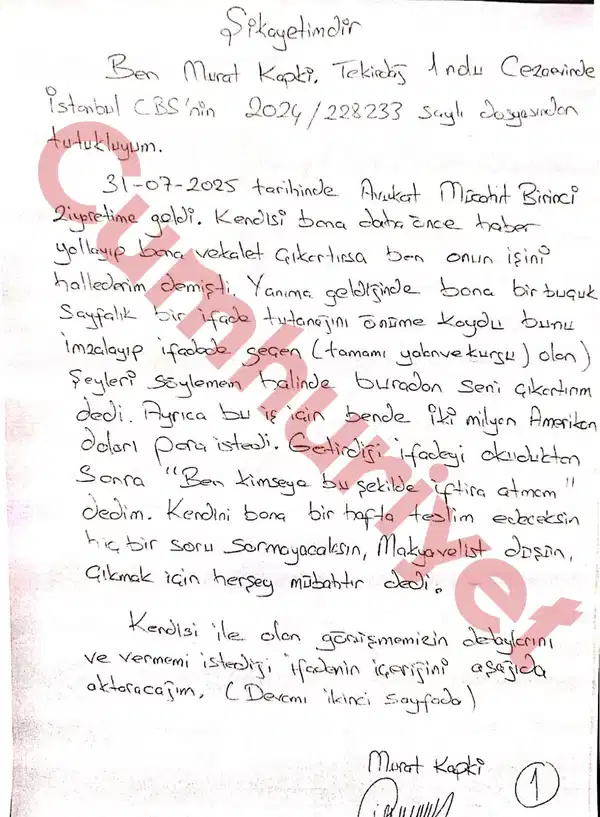 Şikayetimdir
Ben Murat Kapki, Tekirdağ 1 nolu Cezaevinde
İstanbul CBS'nin 2024/228233 sayılı dosyasından
tutukluyum.
31-07-2025 tarihinde Avukat Mücahit Birinci
ziyaretime geldi. Kendisi bana daha önce haber
yollayıp bana vekalet çıkartırsa ben onun işini
hallederim demişti. Yanıma geldiğinde bana bir buçuk
sayfalık bir ifade tutanağını önüme koydu bunu
imzalayıp ifadede geçen (tamamı yalan ve kurgu) olan)
şeyleri söylemem halinde buradan seni çıkartırım
dedi. Ayrıca bu iş için bende iki milyon Amerikan
doları para istedi. Getirdiği ifadeyi okuduktan
Sonra "Ben kimseya bu şekilde iftira atmam"
dedim. Kendini bana bir hafta teslim edeceksin
hiç bir soru sormayacaksın, Makyavelist düşün,
Çıkmak için herşey mübahtır dedi.
Kendisi ile olan görüşmemizin detaylarını
ve vermemi istediği ifadenin içeriğini aşağıda
aktaracağım. (Devamı ikinci sayfada)
Murat Kapki
1
Cumhuriyet